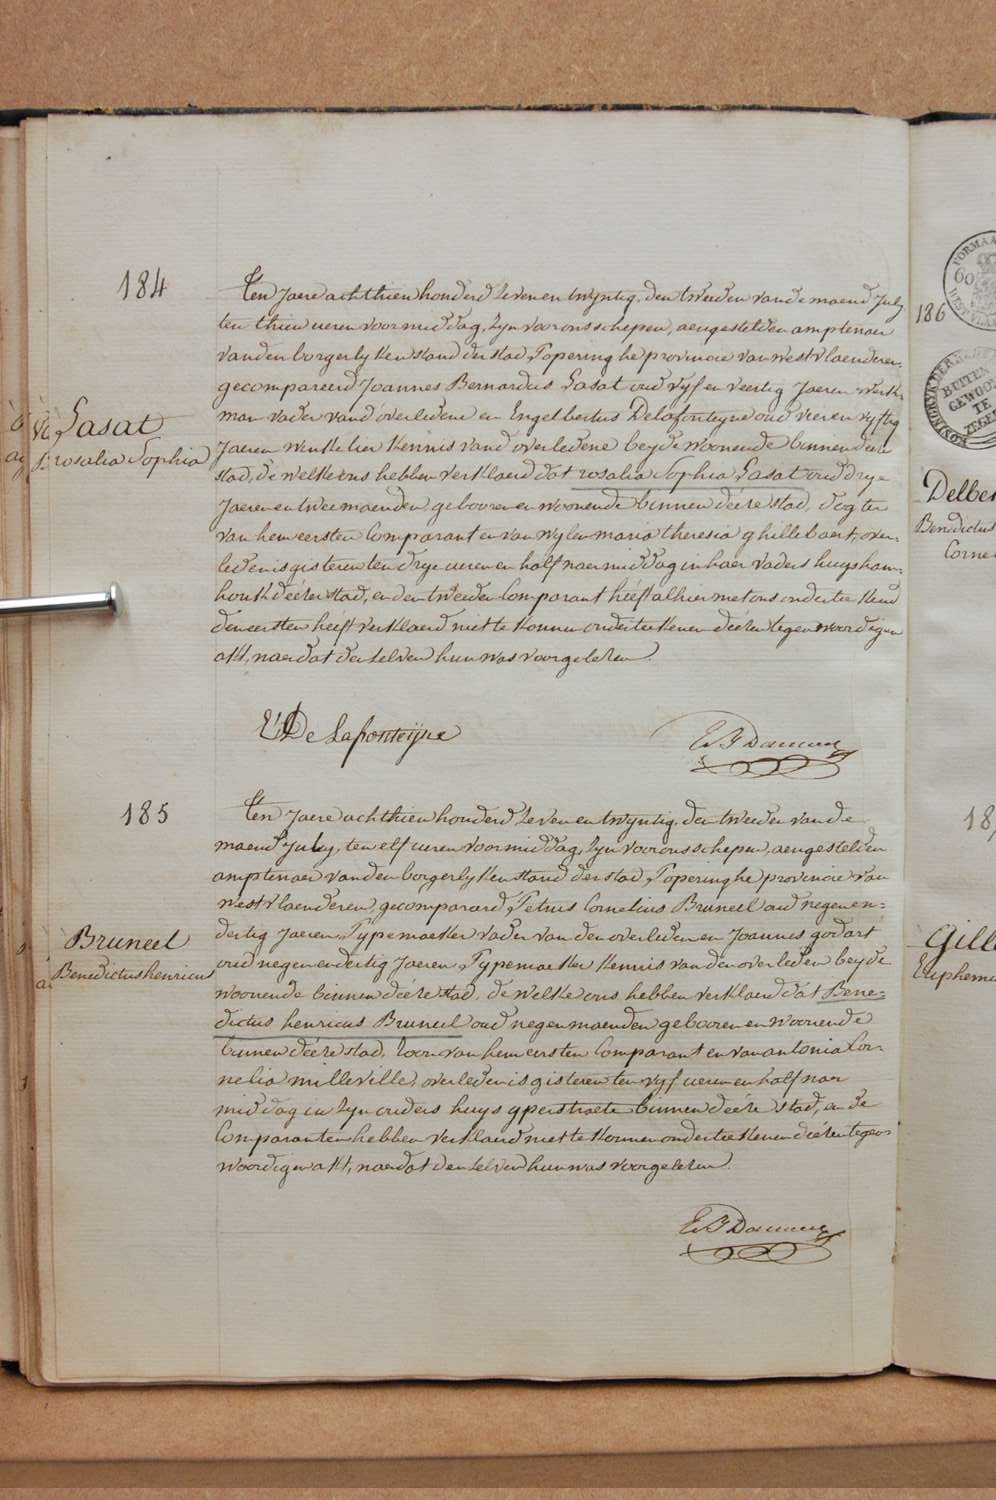 184
Ten Jaere achthien honderd Zeven en twyntig, den tweeden van de maend July
ten thien ueren voormiddag, Zyn voor ons schepen, aengestelden amptenaer
van den borgerlyken stand der stad Poperinghe provincie van westvlaenderen
gecompareerd Joannes Bernardus Gasat oud vyf en veertig Jaeren werk-
man vader vand'overledene en Engelbertus Delafonteyne oud vier en vyftig
Jaeren winkelier kennis vand overledene beyde woonende binnen deeze
stad, de welke ons hebben verklaerd dat rosalia Sophia Gasat oud drye
Jaeren en twee maenden, gebooren en woonende binnen deéze stad, dogter
van hem eersten Comparant en van wylen maria theresia ghillebaert, over-
leden is gisteren ten drye ueren en half naermiddag in haer vaders huys ham-
houk deézer stad, en den tweeden Comparant heéft alhier met ons onderteekend
den eersten heeft verklaerd niet te konnen onderteekenen deézen tegenwoordigen
akt, naer dat de zelven hun was voorgelezen.
Gasat
rosalia Sophia
E D De Lafonteijne
185
Ten Jaere achthien honderd Zeven en twyntig, den tweeden van de
maend July, ten elf ueren voormiddag, Zyn voor ons schepen, aengestelden
amptenaer van den borgerlyken stand der stad Poperinghe provincie van
westvlaenderen, gecompareerd Petrus Cornelius Bruneel oud negen en-
dertig Jaeren, Pypemaeker vader van den overleden en Joannes godart
oud negen en dertig Jaeren Pypemaeker kennis van den overleden beyde
woonende binnen deéze stad, de welke ons hebben verklaerd dat Bene-
dictus henricus Bruneel oud negen maenden gebooren en woonende
binnen deéze stad, Zoon van hem eersten Comparant en van antonia Cor-
nelia milleville, overleden is gisteren ten vyf ueren en half naer
middag in Zyn ouders huys yperstraete binnen deéze stad, en de
Comparanten hebben verklaerd niet te konnen onderteekenen deézen tegen-
woordigen akt, naer dat den zelven hun was voorgelezen.
Bruneel
Benedictus henricus
186
60
BUITEN
GEWOO
TE
ZEGE
Delbe
Benedictus
Corne
18
Gille
Euphemi